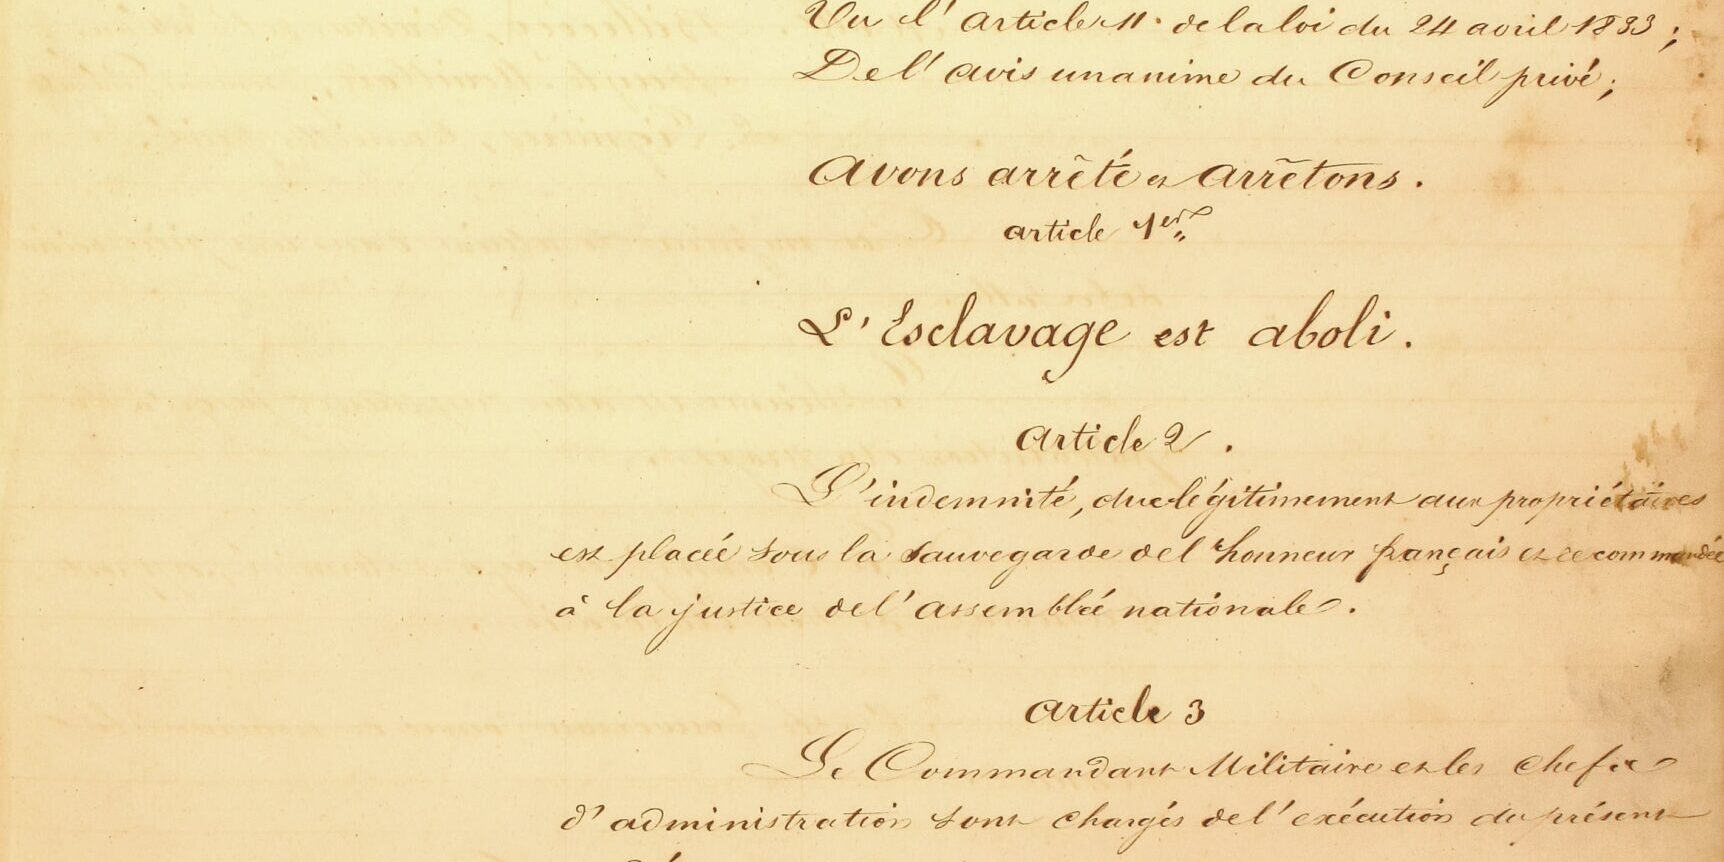 Vu l'article 11. de la loi du 24 avril 1833;
De l'avis unanime du Conseil privé;
Avons arrêté et arrêtons.
article 1er
L'Esclavage est aboli.
Article 2.
L'indemnité, due légitimement aux propriétaires
est placée sous la sauvegarde de l'honneur français et recommandée
à la justice de l'assemblée nationale.
Article 3
Le Commandant Militaire et les chefs
d'administration sont chargés de l'exécution du présent